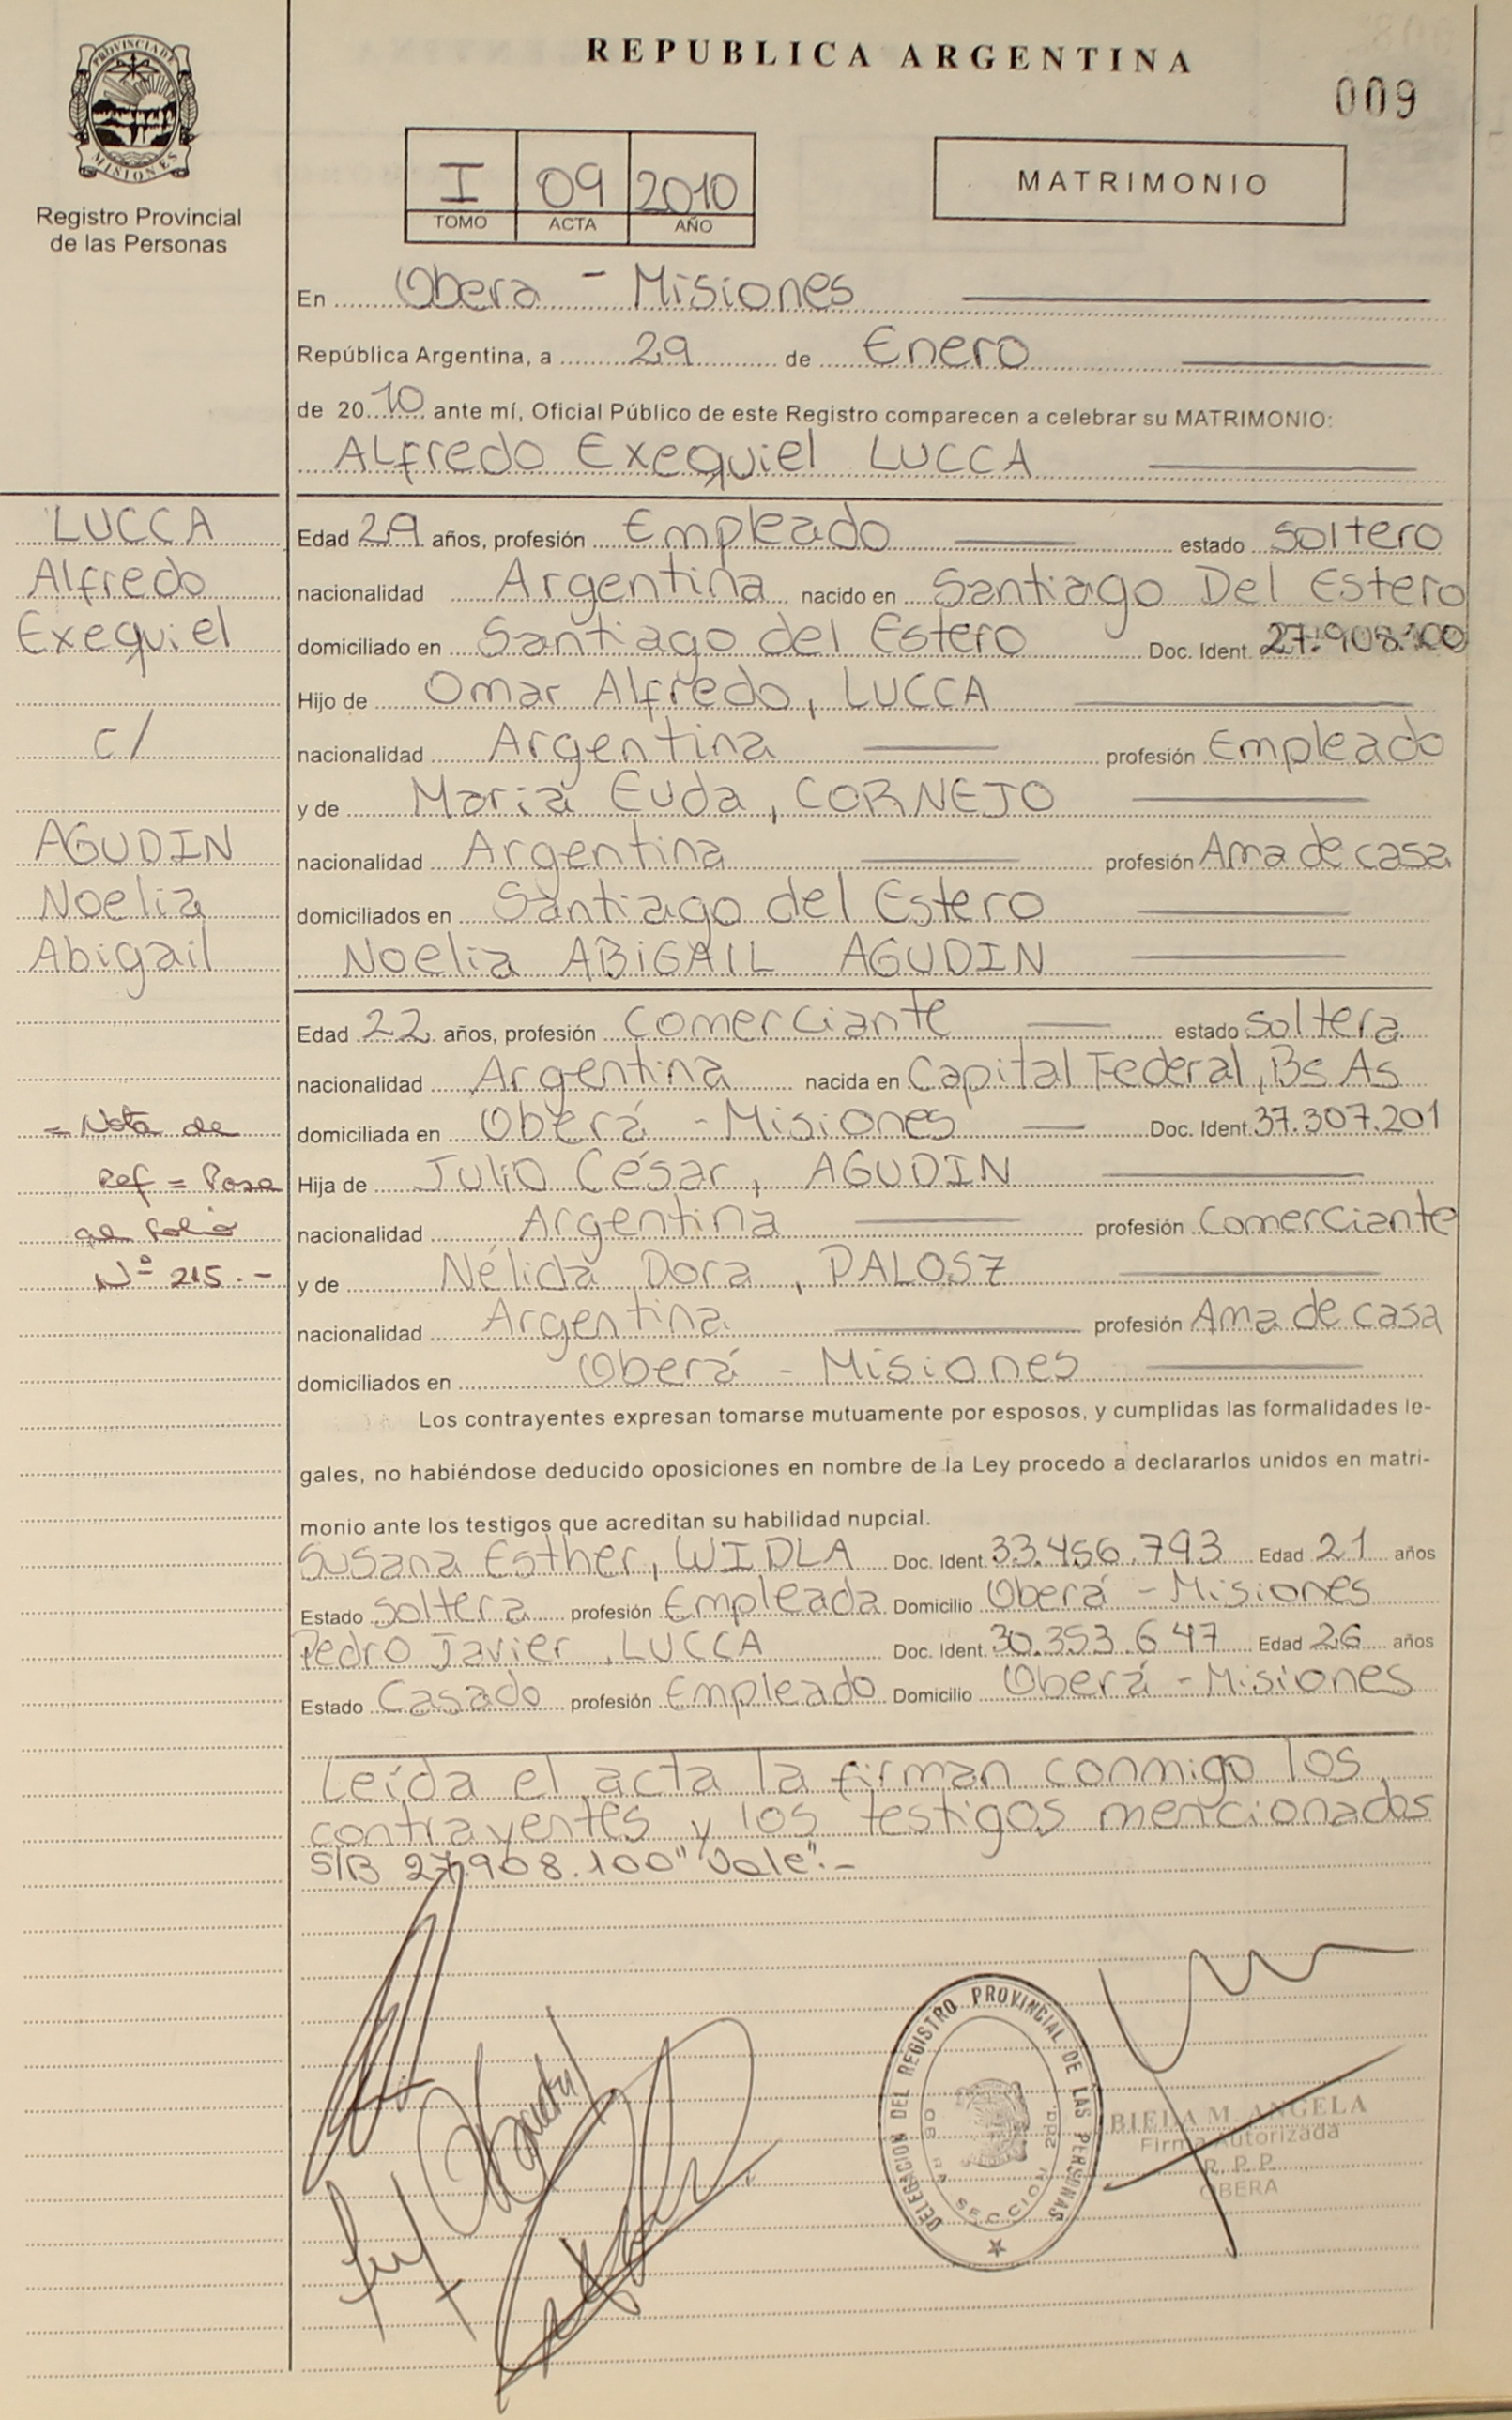 REPUBLICA ARGENTINA
009
PROVINCIA DE
MISIONES
Registro Provincial
de las Personas
I 09 2010
TOMO ACTA AÑO
MATRIMONIO
En Obera - Misiones
República Argentina, a 29 de Enero
de 2010 ante mí, Oficial Público de este Registro comparecen a celebrar su MATRIMONIO:
Alfredo Exequiel LUCCA
LUCCA
Alfredo
Exequiel
c/
AGUDIN
Noelia
Abigail
= Nota de
Ref = Pasa
al folio
Nº 215.-
Edad 29 años, profesión Empleado estado soltero
nacionalidad Argentina nacido en Santiago Del Estero
domiciliado en Santiago del Estero Doc. Ident. 27.908.100
Hijo de Omar Alfredo, LUCCA
nacionalidad Argentina profesión Empleado
y de Maria Euda, CORNEJO
nacionalidad Argentina profesión Ama de casa
domiciliados en Santiago del Estero
Noelia ABiGAIL AGUDIN
Edad 22 años, profesión Comerciante estado soltera
nacionalidad Argentina nacida en Capital Federal, Bs As
domiciliada en Oberá - Misiones Doc. Ident. 37.307.201
Hija de Julio César, AGUDIN
nacionalidad Argentina profesión Comerciante
y de Nélida Dora, PALOSZ
nacionalidad Argentina profesión Ama de casa
domiciliados en Oberá - Misiones
Los contrayentes expresan tomarse mutuamente por esposos, y cumplidas las formalidades le-
gales, no habiéndose deducido oposiciones en nombre de la Ley procedo a declararlos unidos en matri-
monio ante los testigos que acreditan su habilidad nupcial.
Susana Esther, WIDLA Doc. Ident. 33.456.793 Edad 21 años
Estado soltera profesión Empleada Domicilio Oberá - Misiones
Pedro Javier, LUCCA Doc. Ident. 30.353.647 Edad 26 años
Estado Casado profesión Empleado Domicilio Oberá - Misiones
Leída el acta la firman conmigo los
contrayentes y los testigos mencionados
S/B 27.908.100" Vale".-
DELEGACION DEL REGISTRO PROVINCIAL DE LAS PERSONAS
SECCION 2da.
BIELA M. ANGELA
Firma Autorizada
R. P. P.
OBERA